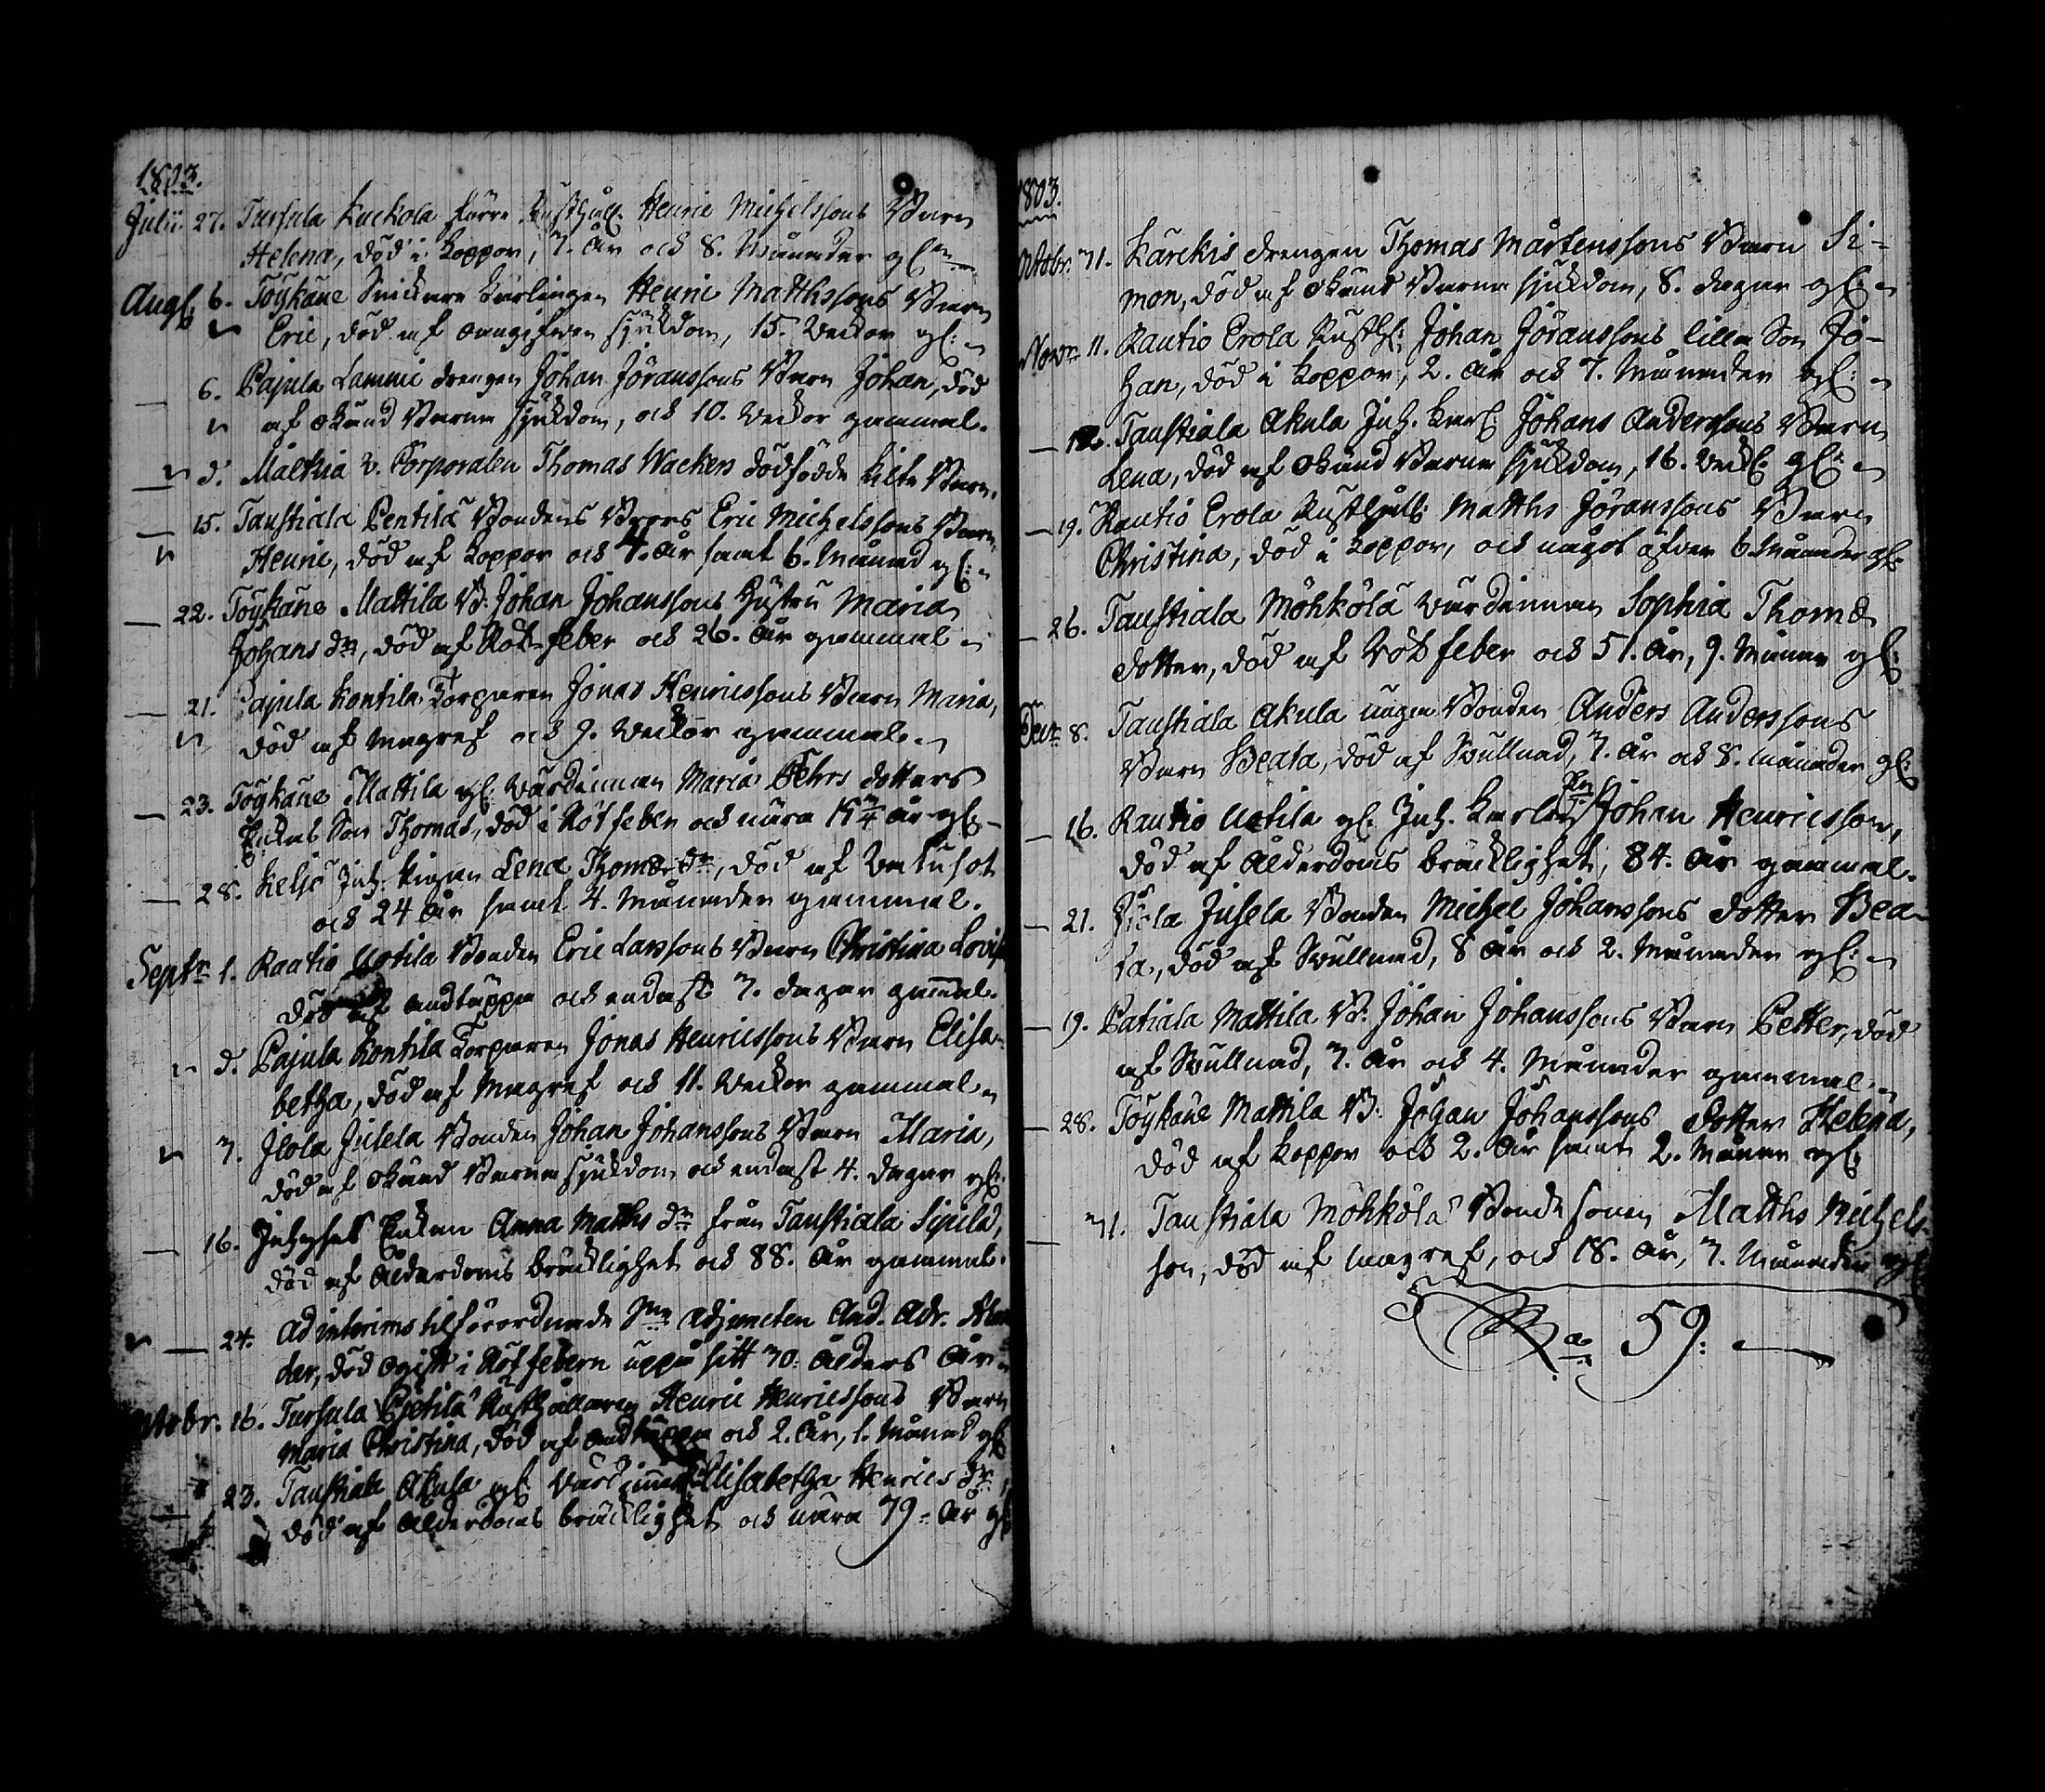 1803.
Julii 27. Tursula Kuckola förre Rusthåll. Henric Michelssons Barn
Helena, död i koppor, 7. år och 8. Månader gl.
Aug. 6. Töykäne Snickare Karlingen Henric Matthssons Barn
Eric, död af oangifven sjukdom, 15. Veckor gl:
6. Pajula Lammi drengen Johan Jöranssons Barn Johan, död
af okänd Barna sjukdom, och 10. Veckor gammal.
d. Mälkiä v. Corporalen Thomas Wackers dödfödde lilla Barn.
15. Taustiala Pentilä Bondens Brors Eric Michelssons Barn
Henric, död af koppor och 4. år samt 6. Månad gl:
22. Töykäne Mattila B. Johan Johanssons Hustru Maria
Johans dr, död af Rötfeber och 26. år gammal
21. Pajula Kontila Torparen Jonas Henricssons Barn Maria,
död af Magref och 9. Veckor gammal.
23. Töykäne Mattila gl. Värdinnan Maria Pehrs dotters
Enkas Son Thomas, död i Rötfeber och nära år gl.
28. Keljo Inh. Pigan Lena Thomæ dr, död af
och 24 år samt 4. Månader gammal.
Septr 1. Rautio Uotila Bonden Eric Larssons Barn Christina Lovisa
död af andtäppa och endast 7. dagar gamal.
d. Pajula Kontila Torparen Jonas Henricssons Barn Elisa-
betha, död af Magref och 11. Veckor gammal
7. Jlola Juhela Bonden Johan Johanssons Barn Maria,
död af okänd Barna sjukdom och endast 4. dagar gl.
16. Inhyses Enkan Anna Matths dr från Taustiala Sipilä,
död af Ålderdoms bräcklighet och 88. år gammal.
24. Ad interims tilförordnade Adjuncten And. Adr.
der, död ogift i Rötfebern uppå sitt 30. Ålders År
Octobr. 16. Tursula Pietilä Rusthållaren Henric Henricssons Barn
Maria Christina, död af andtäppa och 2. år, 1. Månad gl.
23. Taustiala Akula gl. Värdinnan Elisabetha Henrics dr,
död af Ålderdoms bräcklighet och nära 79. år gl
1803.
Octobr. 31. Kärckis drengen Thomas Mårtenssons Barn Si-
mon, död af okänd Barna sjukdom, 8. dagar gl:
Novr 11. Rautio Erola Rusth. Johan Jöranssons lilla Son Jo-
han, död i koppor, 2. år och 7. Månader gl:
12. Taustiala Akula Inh. Karl. Johans Anderssons Barn
Lena, död af okänd Barna sjukdom, 16. Veck. gl:
19. Rautio Erola Rusthåll. Matths Jöranssons Barn
Christina, död i koppor, och något öfver 6 Månader gl.
26. Taustiala Möhkölä Värdinnan Sophia Thomæ
dotter, död af Rötfeber och 51. år, 9. Månar gl.
Decr 8. Taustiala Akula unga Bonden Anders Anderssons
Barn Beata, död af Svullnad, 7. år och 8. månader gl.
16. Rautio Uotila gl. Inh. Karlen Johan Henricsson,
död af Ålderdoms bräcklighet, 84. år gammal.
21. Jlola Juhela Bonden Michel Johanssons dotter Bea-
ta, död af Svullnad, 8 år och 2. Månader gl:
19. Patiala Mattila B. Johan Johanssons Barn Petter, död
af Svullnad, 7. år och 4. Månader gammal
28. Töykäne Mattila B. Johan Johanssons dotter Helena,
död af koppor och 2. år samt 2. Månar gl.
31. Taustiala Möhkölä Bonde sonen Matths Michels-
son, död af magref, och 18. år, 7. Månader gl
59.